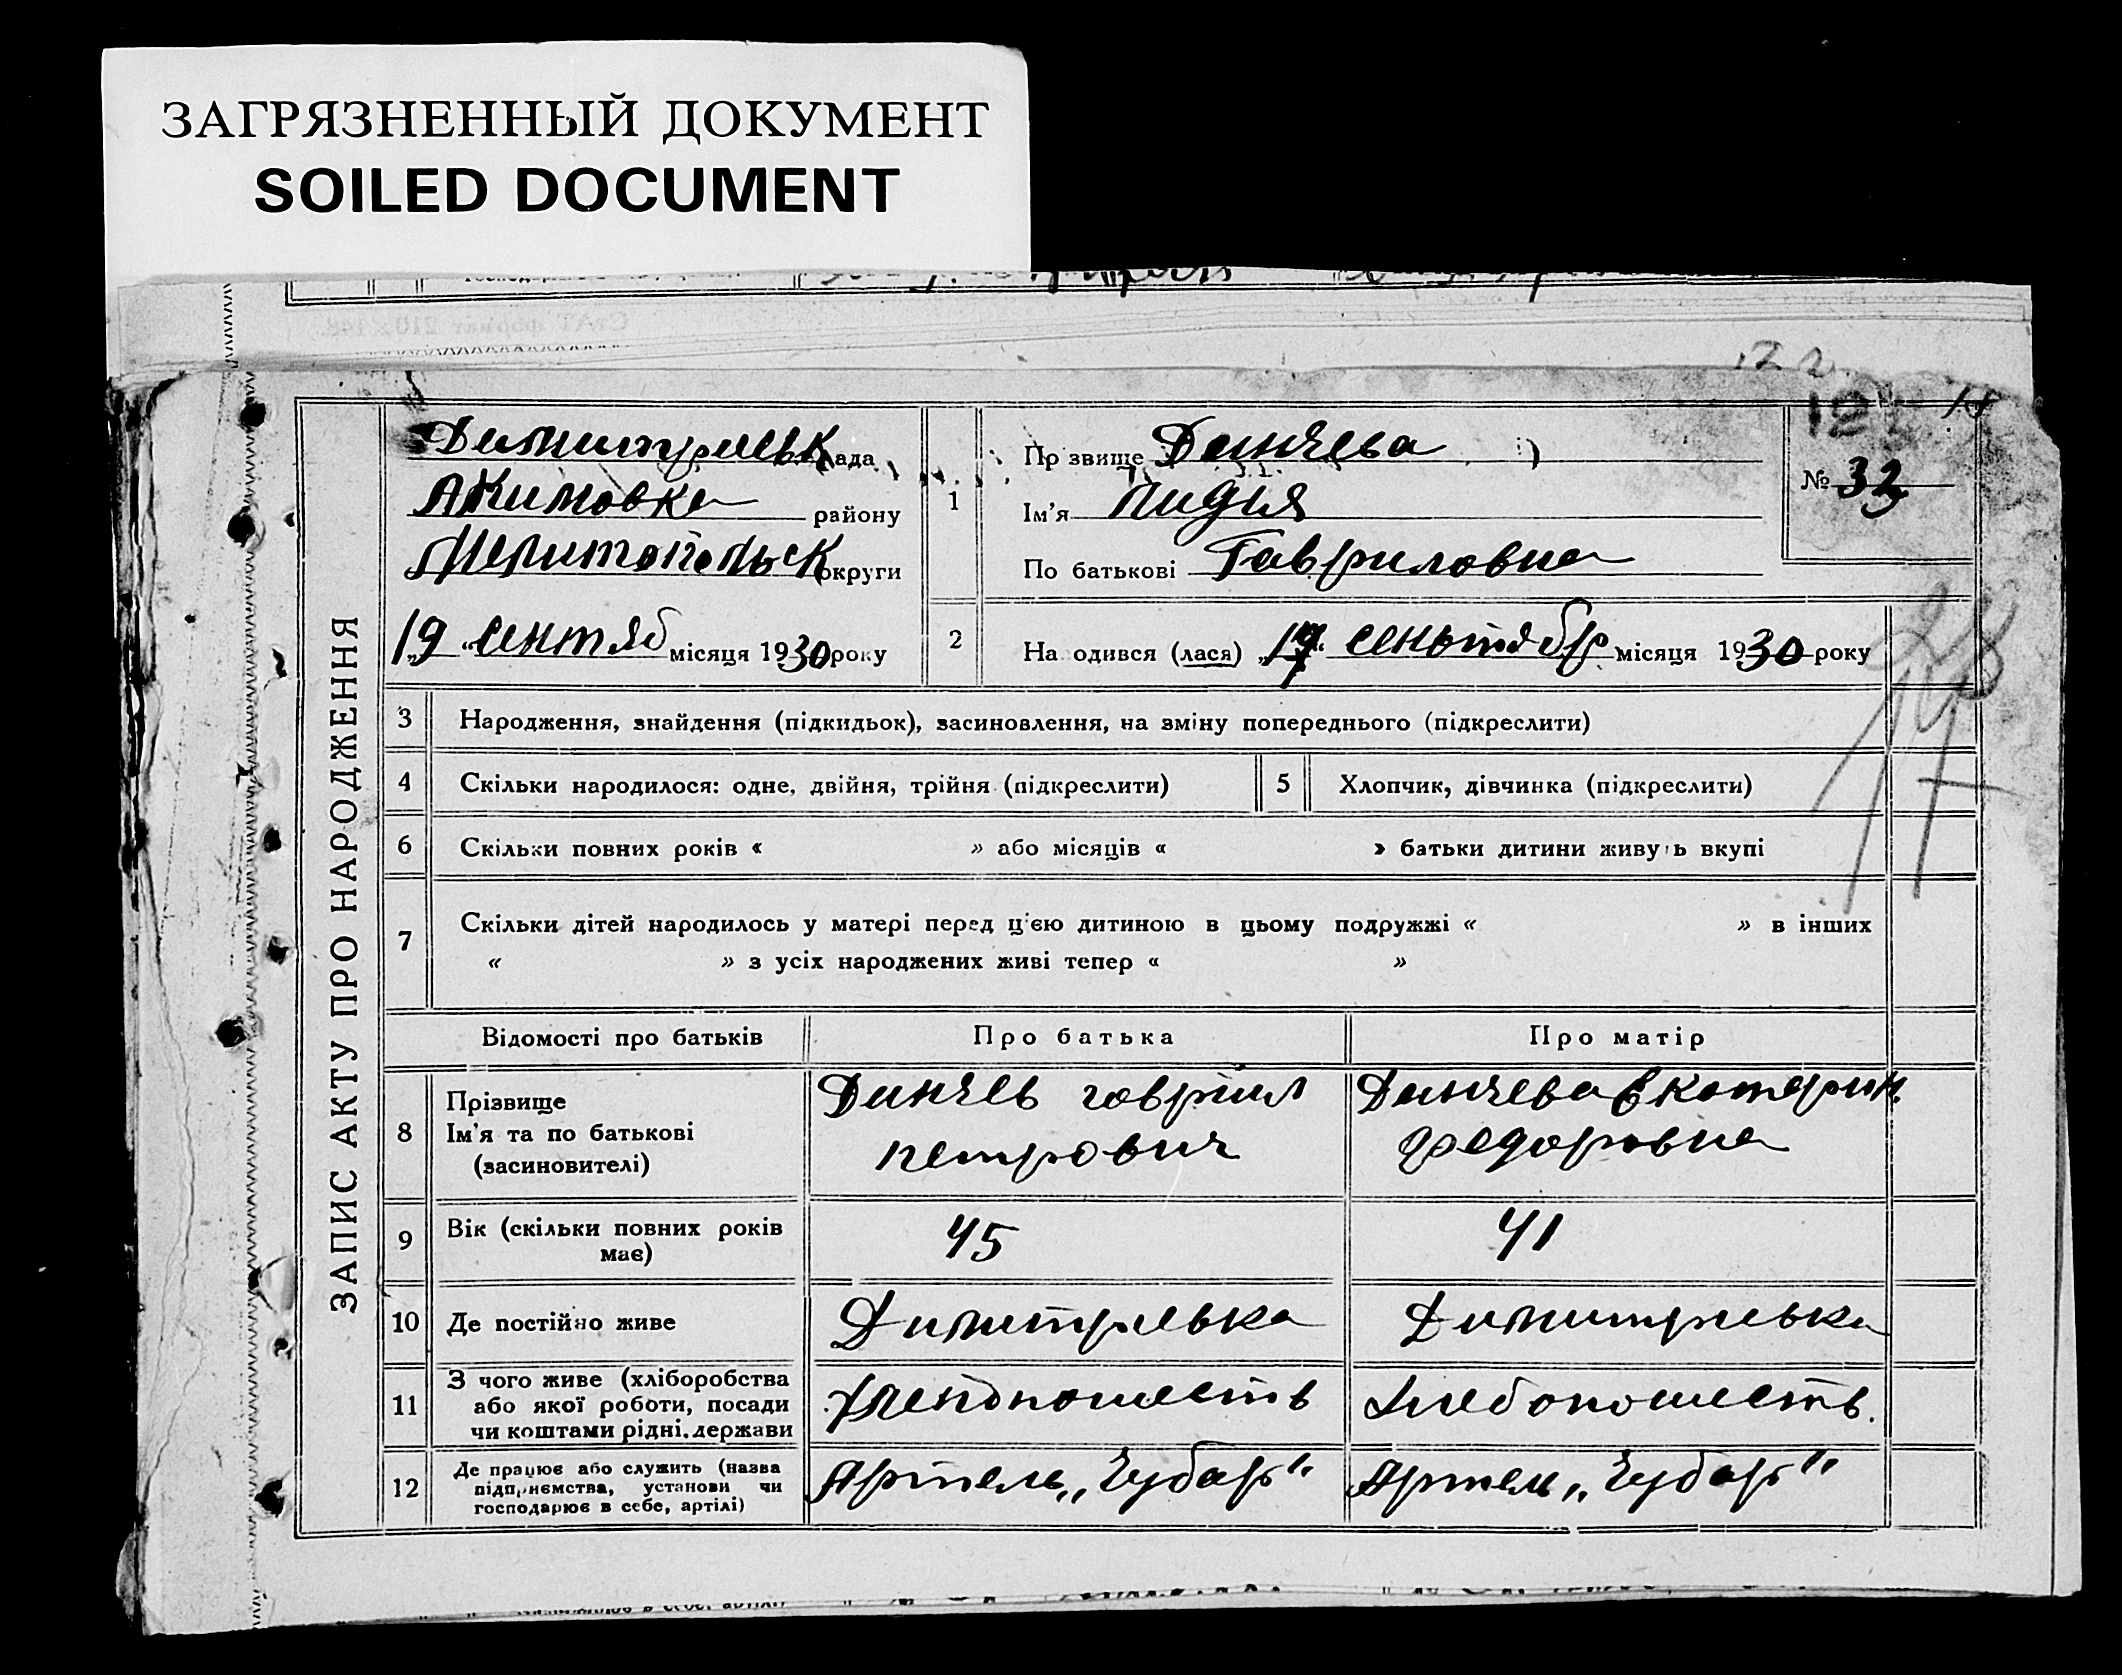 ЗАГРЯЗНЕННЫЙ ДОКУМЕНТ
SOILED DOCUMENT
ЗАПИС АКТУ ПРО НАРОДЖЕННЯ
Димитриевськ рада
Акимовка району
Мелитопольск округи
„19“ сентяб місяця 1930 року
1
Прізвище Динчева
Ім'я Лидия
По батькові Гавриловна
№ 32
2 На одився (лася) „17“ сеньтябр місяця 1930 року
3 Народження, знайдення (підкидьок), засиновлення, на зміну попереднього (підкреслити)
4 Скільки народилося: одне, двійня, трійня (підкреслити) 5 Хлопчик, дівчинка (підкреслити)
6 Скільки повних років « » або місяців « » батьки дитини живуть вкупі
7 Скільки дітей народилось у матері перед ц'єю дитиною в цьому подружжі « » в інших
« » з усіх народжених живі тепер « »
Відомості про батьків Про батька Про матір
8 Прізвище
Ім'я та по батькові
(засиновителі)
Динчев говриил
петрович
Динчева Екатерин.
федоровна
9 Вік (скільки повних років
має)
45 41
10 Де постійно живе Димитривка Димитриевка
11 З чого живе (хліборобства
або якої роботи, посади
чи коштами рідні, держави
Хлебопошеств Хлебопошеств.
12 Де працює або служить (назва
підприємства, установи чи
господарює в себе, артілі)
Артель „Чубарь“ Артель „Чубарь“